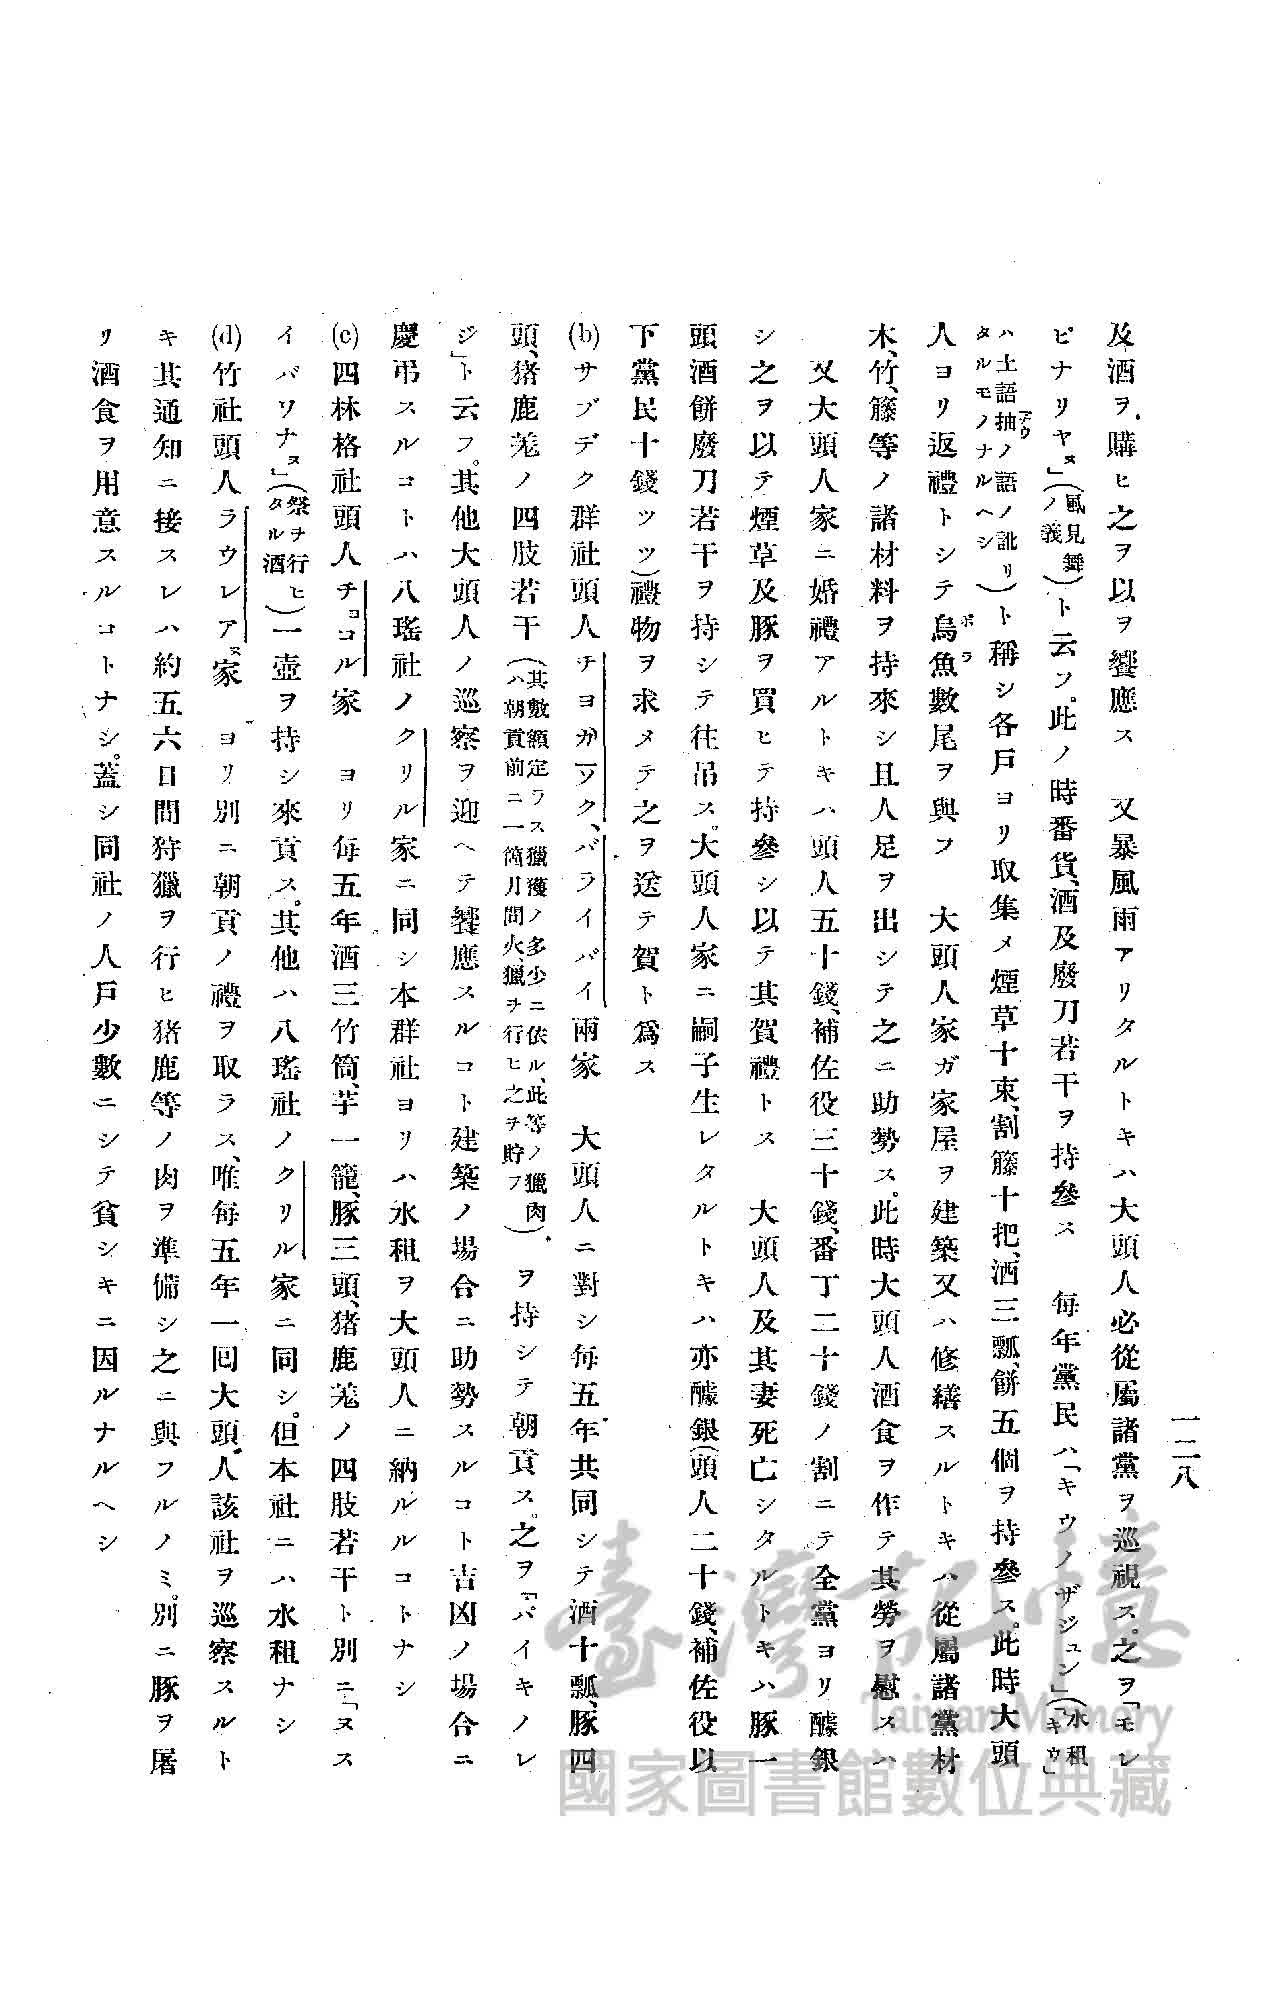 一二八
及酒ヲ購ヒ之ヲ以ヲ饗應ス　又暴風雨アリタルトキハ大頭人必從屬諸黨ヲ巡視ス。之ヲ「モレ
ピナリヤヌ」(風見舞ノ義)ト云フ。此ノ時番貨、酒及廢刀若干ヲ持參ス　每年黨民ハ「キウノザジュン」(水租「キウ」
ハ土語抽ノ語ノ訛リタルモノナルヘシ)ト稱シ各戶ヨリ取集メ煙草十束、割籐十把、酒三瓢、餅五個ヲ持參ス。此時大頭
人ヨリ返禮トシテ烏魚數尾ヲ與フ　大頭人家ガ家屋ヲ建築又ハ修繕スルトキハ從屬諸黨材
木、竹、籐等ノ諸材料ヲ持來シ且人足ヲ出シテ之ニ助勢ス。此時大頭人酒食ヲ作テ其勞ヲ慰スハ
又大頭人家ニ婚禮アルトキハ頭人五十錢、補佐役三十錢、番丁二十錢ノ割ニテ全黨ヨリ醵銀
シ之ヲ以テ煙草及豚ヲ買ヒテ持參シ以テ其賀禮トス　大頭人及其妻死亡シタルトキハ豚一
頭酒餅廢刀若干ヲ持シテ往吊ス。大頭人家ニ嗣子生レタルトキハ亦醵銀(頭人二十錢、補佐役以
下黨民十錢ツツ)禮物ヲ求メテ之ヲ送テ賀ト爲ス
(b)サブデク群社頭人チヨガソク、バライバイ兩家　大頭人ニ對シ每五年共同シテ酒十瓢、豚四
頭、猪鹿羗ノ四肢若干(其數額定ラス獵獲ノ多少ニ依ル、此等ノ獵肉ハ朝貢前ニ一箇月間火獵ヲ行ヒ之ヲ貯フ)ヲ持シテ朝貢ス。之ヲ「パイキノレ
ジ」ト云フ。其他大頭人ノ巡察ヲ迎ヘテ饗應スルコト建築ノ場合ニ助勢スルコト吉凶ノ場合ニ
慶弔スルコトハ八瑤社ノクリル家ニ同シ本群社ヨリハ水租ヲ大頭人ニ納ルルコトナシ
(c)四林格社頭人チヨコル家　ヨリ每五年酒三竹筒、芋一籠、豚三頭、猪鹿羗ノ四肢若干ト別ニ「ヌス
イバワナヌ」(祭ヲ行ヒタル酒)一壺ヲ持シ來貢ス。其他ハ八瑤社ノクリル家ニ同シ。但本社ニハ水租ナシ
(d)竹社頭人ラウレアヌ家　ヨリ別ニ朝貢ノ禮ヲ取ラス、唯每五年一囘大頭人該社ヲ巡察スルト
キ其通知ニ接スレハ約五六日間狩獵ヲ行ヒ猪鹿等ノ肉ヲ準備シ之ニ與フルノミ。別ニ豚ヲ屠
リ酒食ヲ用意スルコトナシ。蓋シ同社ノ人戶少數ニシテ貧シキニ因ルナルヘシ
臺灣記憶
Taiwan Memory
國家圖書館數位典藏